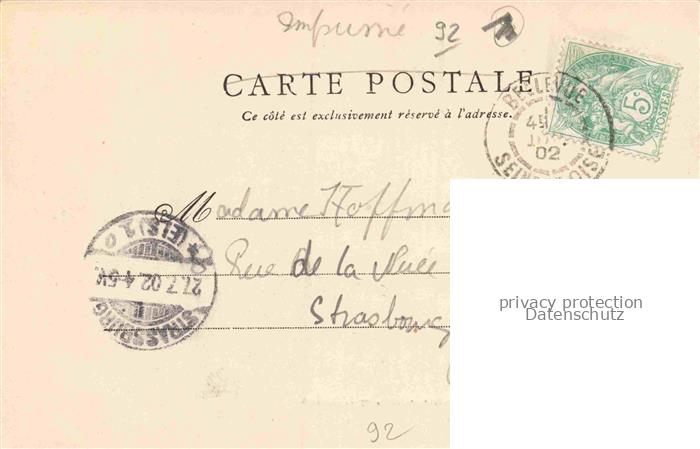 Imprimé 92
CARTE POSTALE
Ce côté est exclusivement réservé à l'adresse.
FRANÇAISE
5c
POSTES
BELLEVUE
02
SEINE
OISE
Madame Hoffma
Rue de la Nuée
Strasbourg
STRASSBURG
27.7.02.4-5
*(ELS)1 0
privacy protection
Datenschutz
92